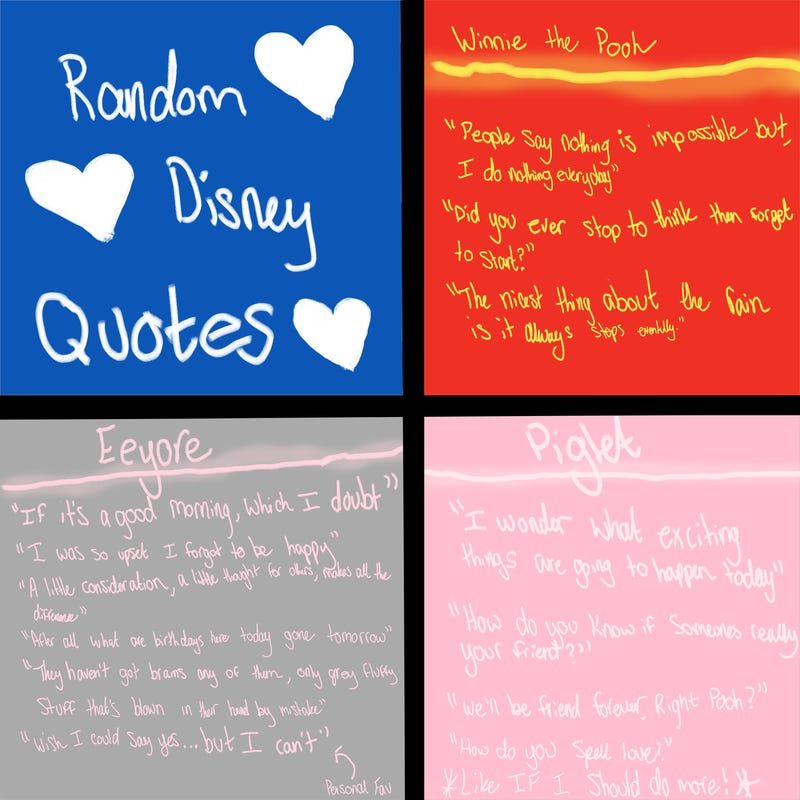 Random
Disney
Quotes
Winnie the Pooh
"People say nothing is impossible but,
I do nothing everyday"
"Did you ever stop to think then forget
to start?"
"The nicest thing about the rain
is it always stops evenfully."
Eeyore
"If it's a good morning, which I doubt"
"I was so upset I forgot to be happy"
"A little consideration, a little thought for others, makes all the
difference"
"After all what are birthdays here today gone tomorrow"
"They haven't got brains any of them, only grey fluffy
stuff that's blown in their head by mistake"
"Wish I could say yes... but I can't"
Personal Fav
Piglet
"I wonder what exciting
things are going to happen today"
"How do you know if someones really
your friend?"
"we'll be friend forever, Right Pooh?"
"How do you spell love?"
*Like IF I should do more! *